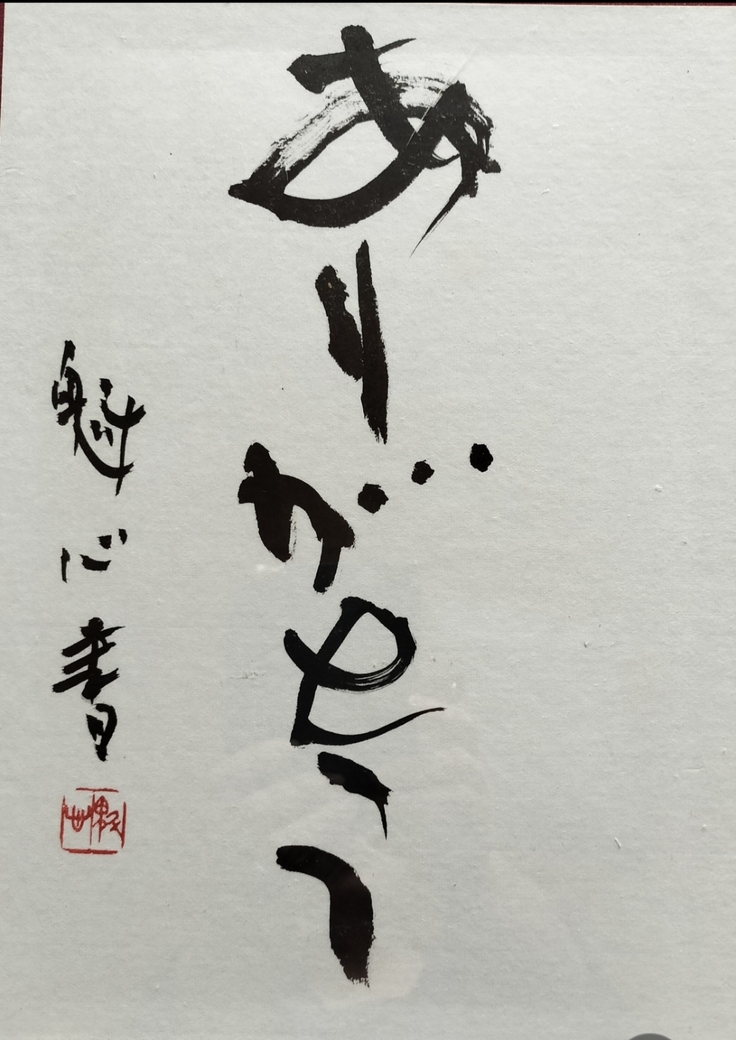 ありがとう
魁心書